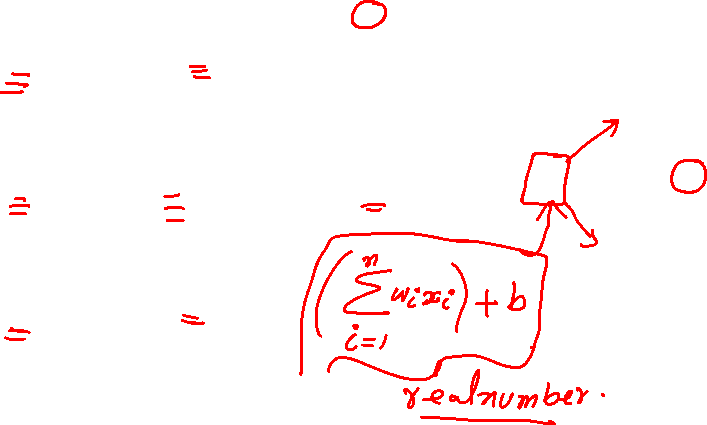 (∑_{i=1}^{n} w_i x_i) + b
realnumber.